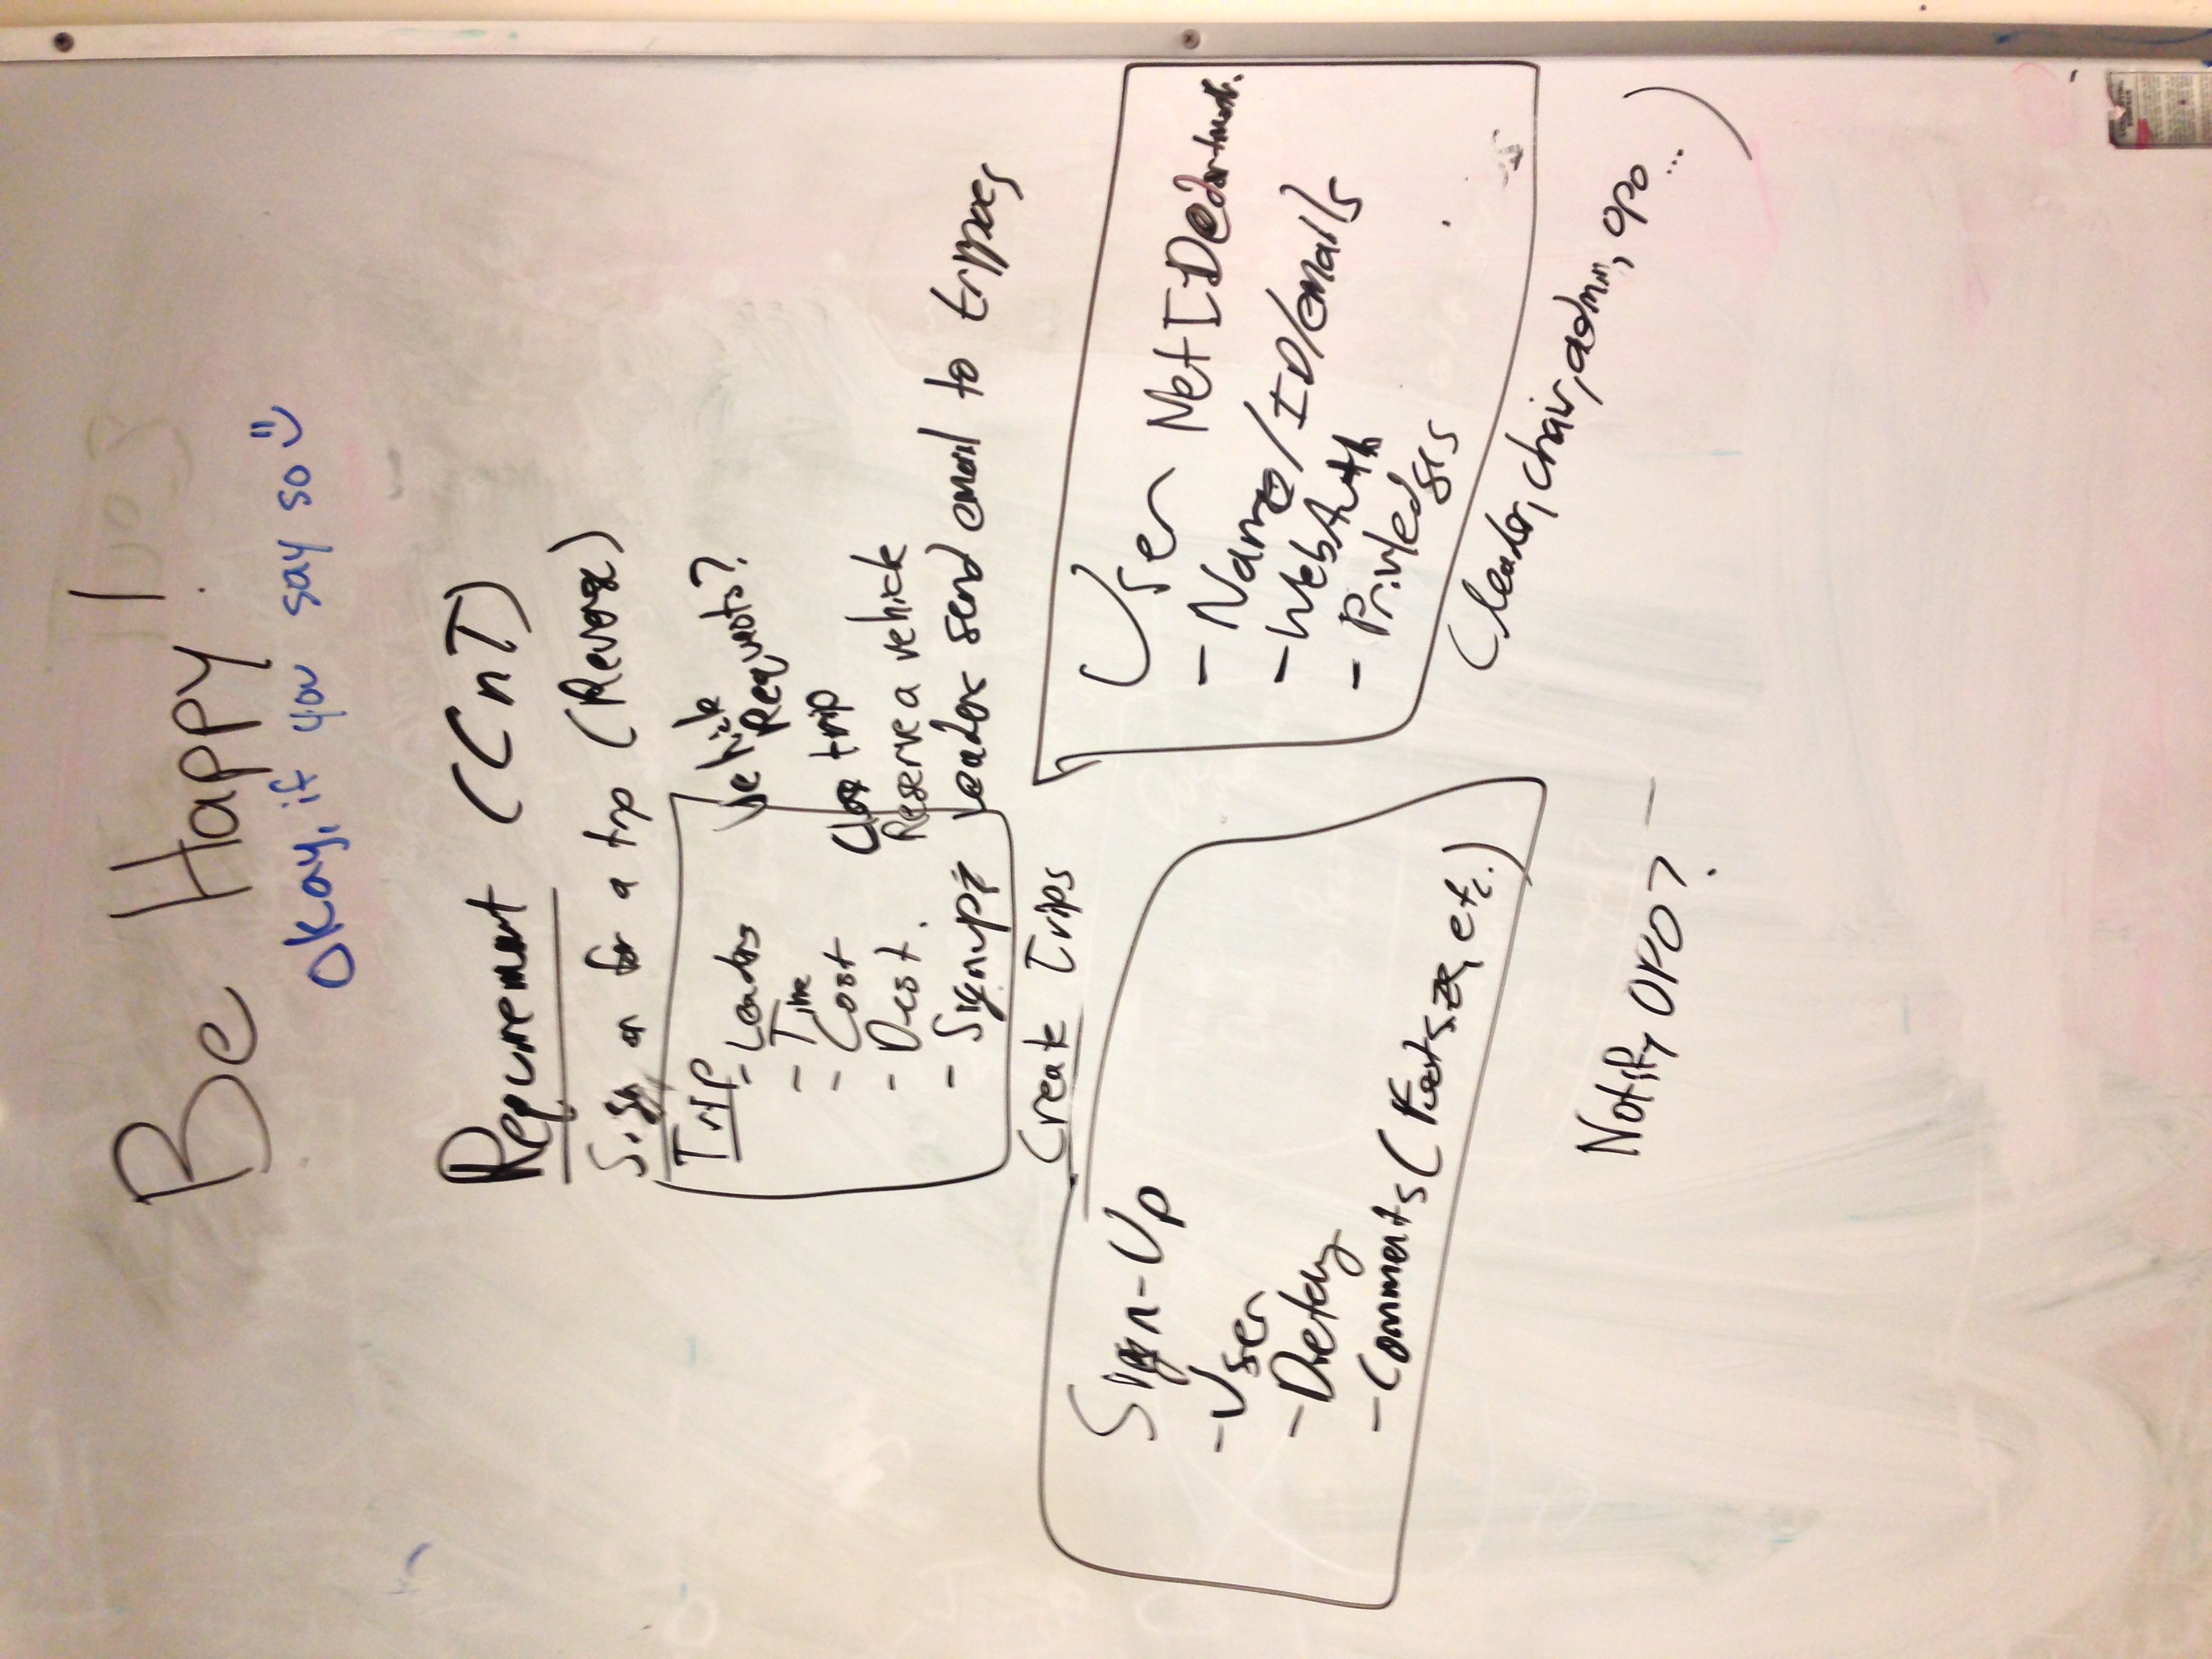 Be Happy!
okay, if you say so
Requirement (CnT)
Sign on for a trip (Reverse)
Trip
- Leaders
- Time
- Cost
- Dest.
- Signups
Vehicle
Requests?
Close trip
Reserve a vehicle
Leaders send email to trippees
Create Trips
Sign-Up
- User
- Dietary
- Comments (Footsize, etc.)
User NetID@dartmouth.
- Name/ID/emails
- WebAuth
- Priviledges
(leader, chair, admin, opo...)
Notify OPO? -